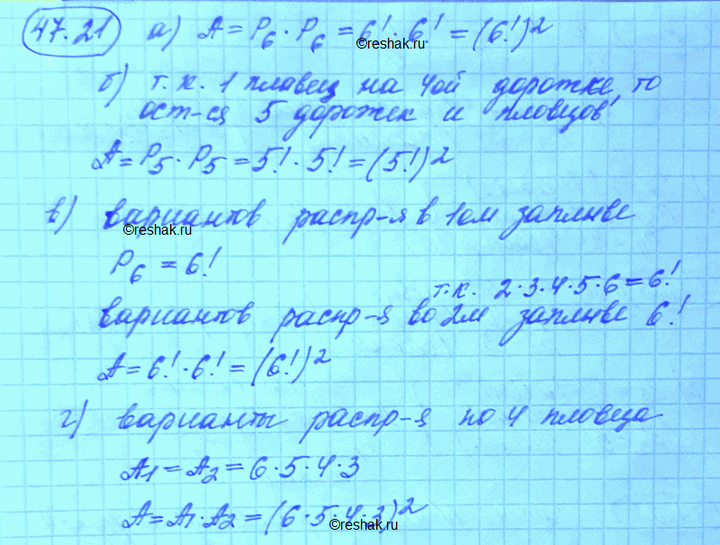 47.21 а) A = P₆ · P₆ = 6! · 6! = (6!)²
©reshak.ru
б) т.к. 1 пловец на 4ой дорожке, то
ост-ся 5 дорожек и пловцов
A = P₅ · P₅ = 5! · 5! = (5!)²
в) вариантов распр-я в 1ом заплыве
©reshak.ru
P₆ = 6!
т.к. 2·3·4·5·6 = 6!
вариантов распр-я во 2м заплыве 6!
A = 6! · 6! = (6!)²
г) варианты распр-я по 4 пловца
A₁ = A₂ = 6·5·4·3
A = A₁·A₂ = (6·5·4·3)²
©reshak.ru